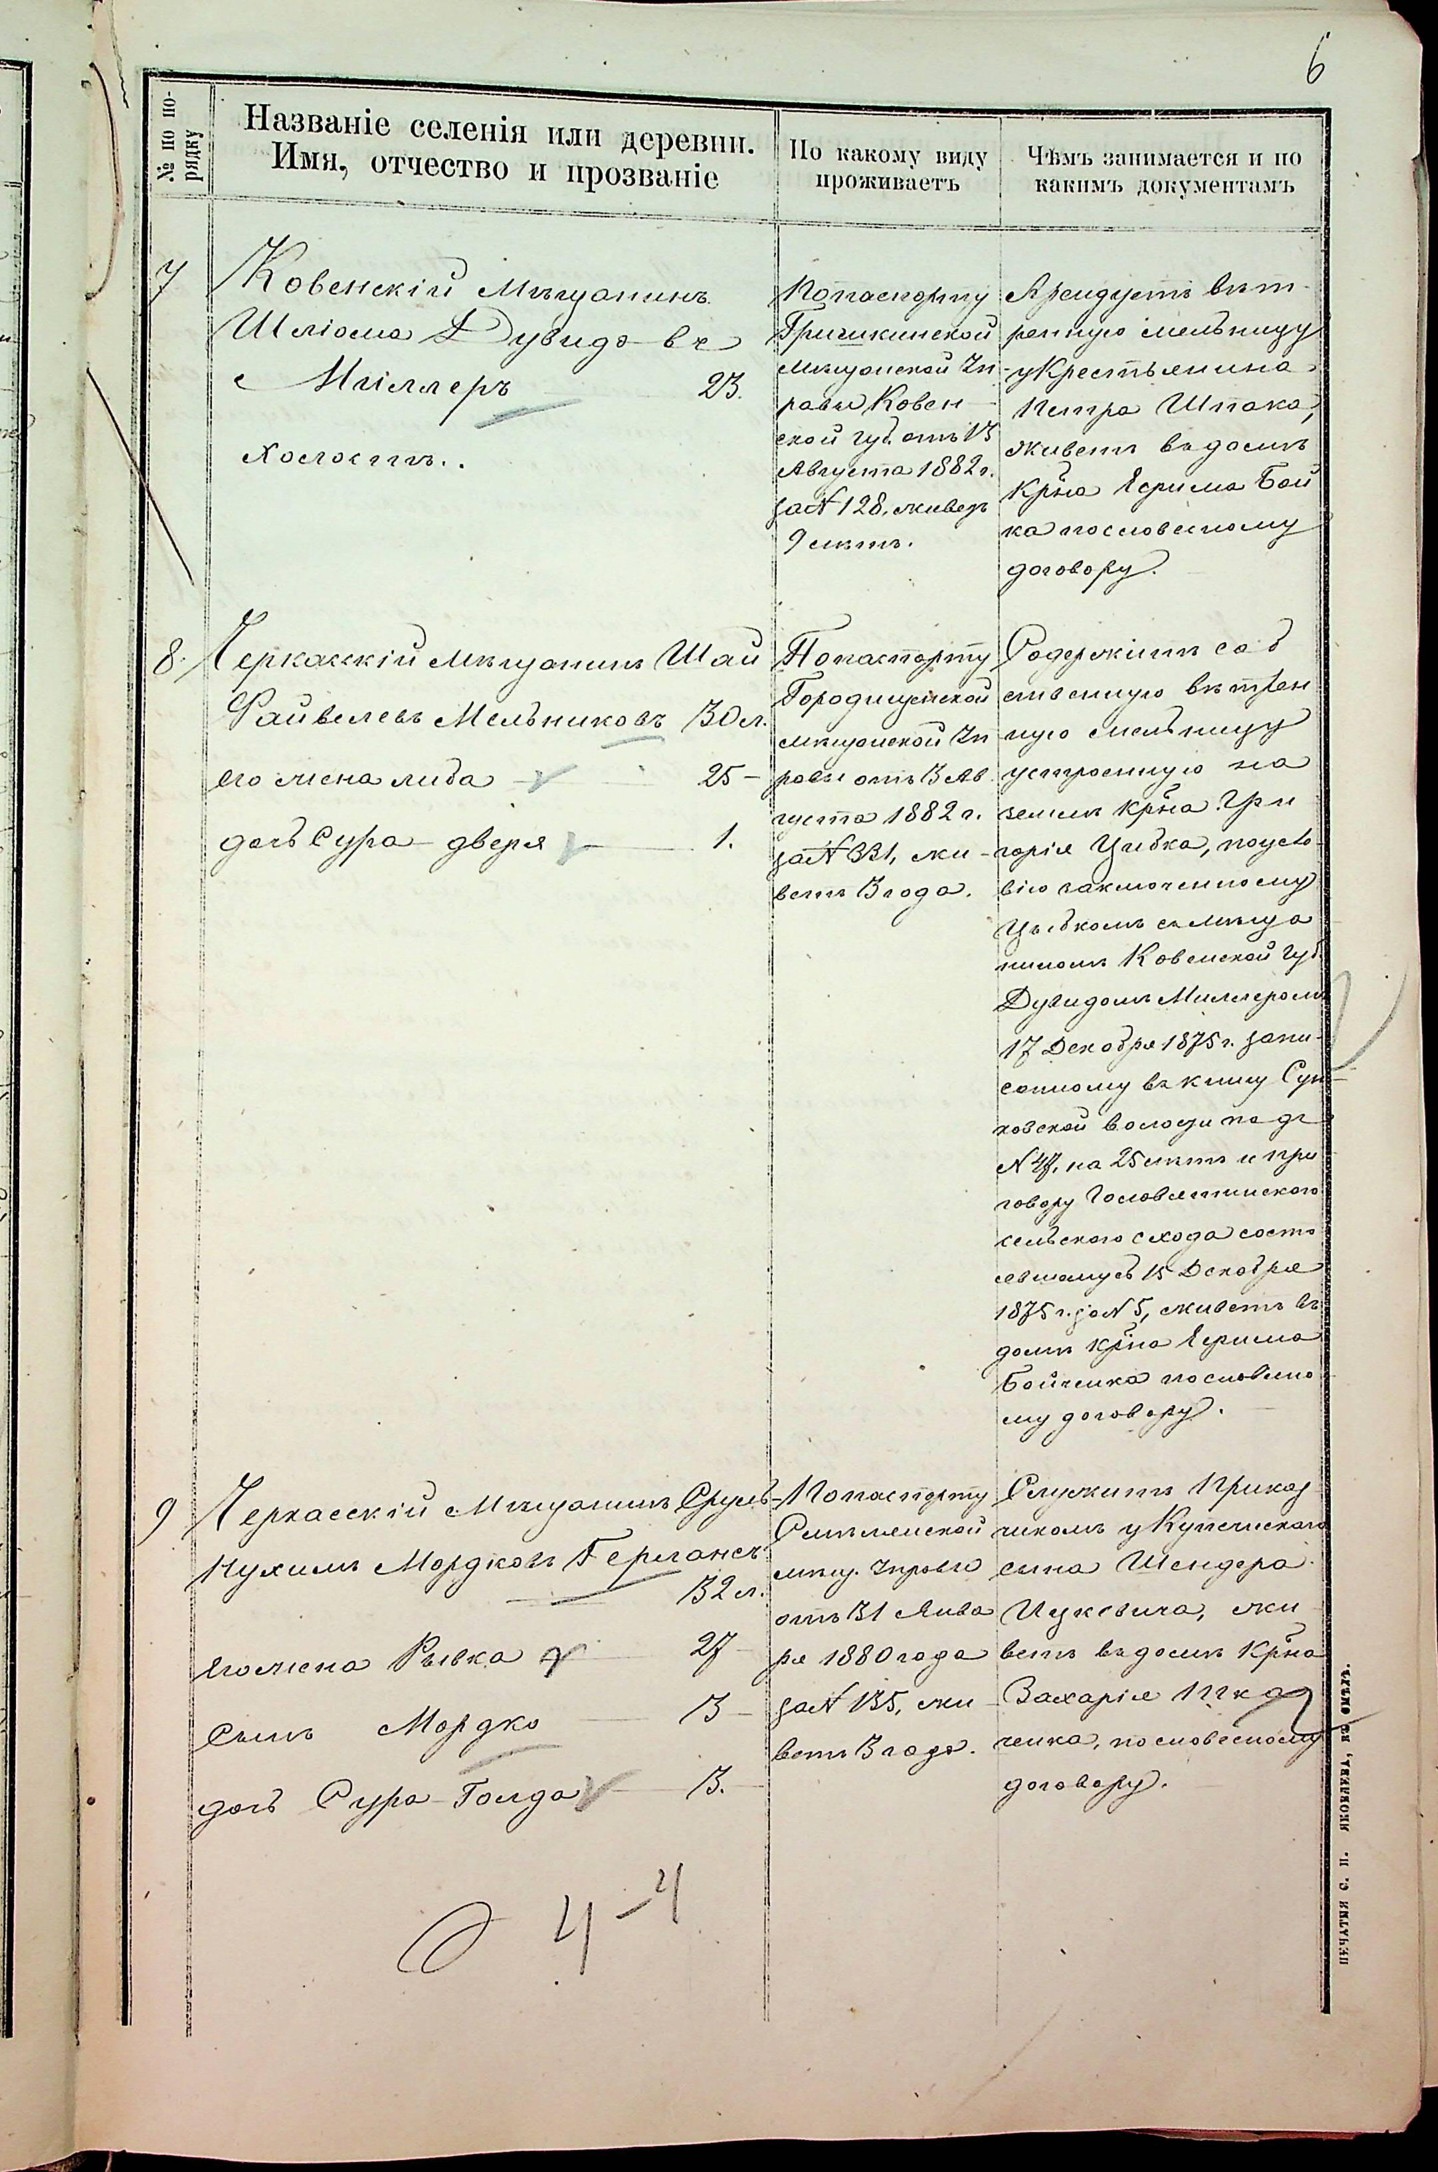 6
№ по по-
рядку
Названіе селенія или деревни.
Имя, отчество и прозваніе
По какому виду
проживаетъ
Чѣмъ занимается и по
какимъ документамъ
7
Ковенскій Мѣщанинъ
Шліома Дувидовъ
Миллеръ 23.
холостъ.
По паспорту
Гришкинской
мѣщанской Уп
равы Ковен
ской губ. отъ 13
Августа 1882 г.
за № 128, живетъ
9 лѣтъ.
Арендуетъ вѣт-
ренную мельницу
у Крестьянина
Петра Шпака,
живетъ въ домѣ
Крна Ефима Бой
ка по словесному
договору.
8.
Черкасскій мѣщанинъ Шая
Файвелевъ Мельниковъ 30 л.
его жена Либа 25 -
дочь Сура-двейя 1.
По паспорту
Городищенской
мѣщанской Уп
равы отъ 3 Ав
густа 1882 г.
за № 331, жи-
ветъ 3 года.
Содержитъ соб
ственную вѣтрен
ную мельницу
устроенную на
землѣ крна Гри
горія Цибка, по усло
вію заключенному
Цыбкомъ съ мѣща
ниномъ Ковенской губ.
Дувидомъ Миллеромъ
17 Декабря 1875 г. запи-
санному въ книгу Сун-
ковской волости подъ
№ 47, на 25 лѣтъ и при
говору Головятинскаго
сельскаго схода состо
явшемусь 15 Декабря
1875 г. за № 5, живетъ въ
домѣ крна Ефима
Бойченка по словесно
му договору.
9
Черкасскій Мѣщанинъ Сруль-
Нухимъ Мордковъ Герман
32 л.
его жена Рывка 27
сынъ Мордко 3 -
дочь Сура-Голда 3.
По паспорту
Смѣлянской
мѣщ. Управы
отъ 31 Янва
ря 1880 года
за № 135, жи-
ветъ 3 года.
Служитъ Прикащ
чикомъ у Купеческаго
сына Шендера
Ицковича, жи
ветъ въ домѣ Крна
Захарія Тка
ченка, по словесному
договору.
4-4
ПЕЧАТНЯ С. П. ЯКОВЛЕВА, ВЪ СМѢЛѢ.